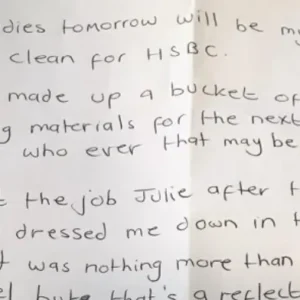 dies tomorrow will be m
clean for HSBC.
made up a bucket of
g materials for the next
who ever that may be
the job Julie after t
dressed me down in t
was nothing more than
that's a reflect